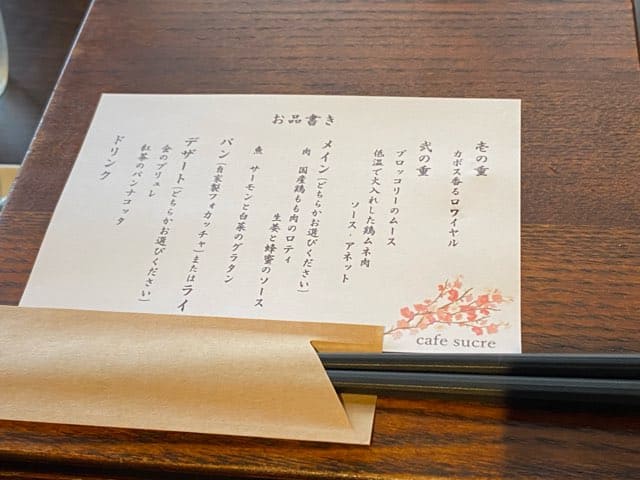 お品書き
壱の重
カボス香るロワイヤル
弐の重
ブロッコリーのムース
低温で火入れした鶏ムネ肉
ソース・アネット
メイン(どちらかお選びください)
肉 国産鶏もも肉のロティ
生姜と蜂蜜のソース
魚 サーモンと白菜のグラタン
パン(自家製フォカッチャ)またはライ
デザート(どちらかお選びください)
金のブリュレ
紅茶のパンナコッタ
ドリンク
cafe sucre